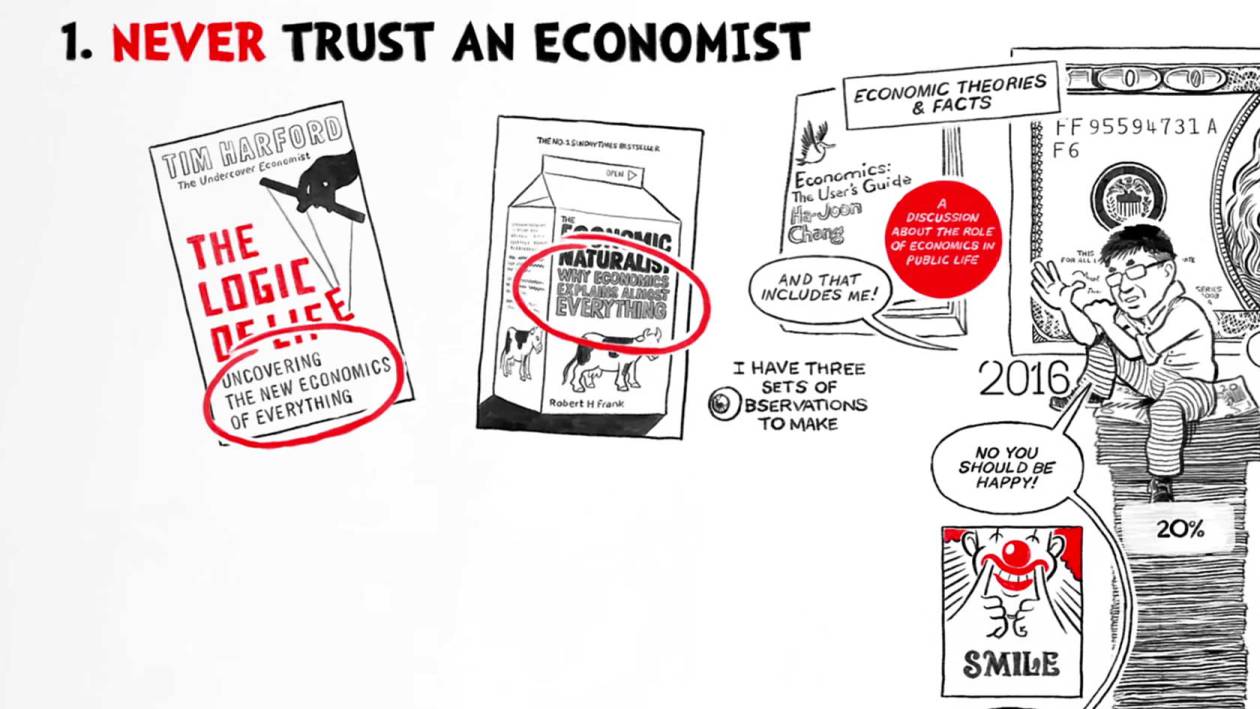 1. NEVER TRUST AN ECONOMIST
TIM HARFORD
The Undercover Economist
THE
LOGIC
OF LIFE
UNCOVERING
THE NEW ECONOMICS
OF EVERYTHING
THE NO.1 SUNDAY TIMES BESTSELLER
OPEN
THE
ECONOMIC
NATURALIST
WHY ECONOMICS
EXPLAINS ALMOST
EVERYTHING
Robert H Frank
ECONOMIC THEORIES
& FACTS
Economics:
The User's Guide
Ha-Joon
Chang
A
DISCUSSION
ABOUT THE ROLE
OF ECONOMICS IN
PUBLIC LIFE
AND THAT
INCLUDES ME!
I HAVE THREE
SETS OF
OBSERVATIONS
TO MAKE
FF95594731A
F6
THIS
FOR ALL
SERIES
2016
NO YOU
SHOULD BE
HAPPY!
20%
SMILE